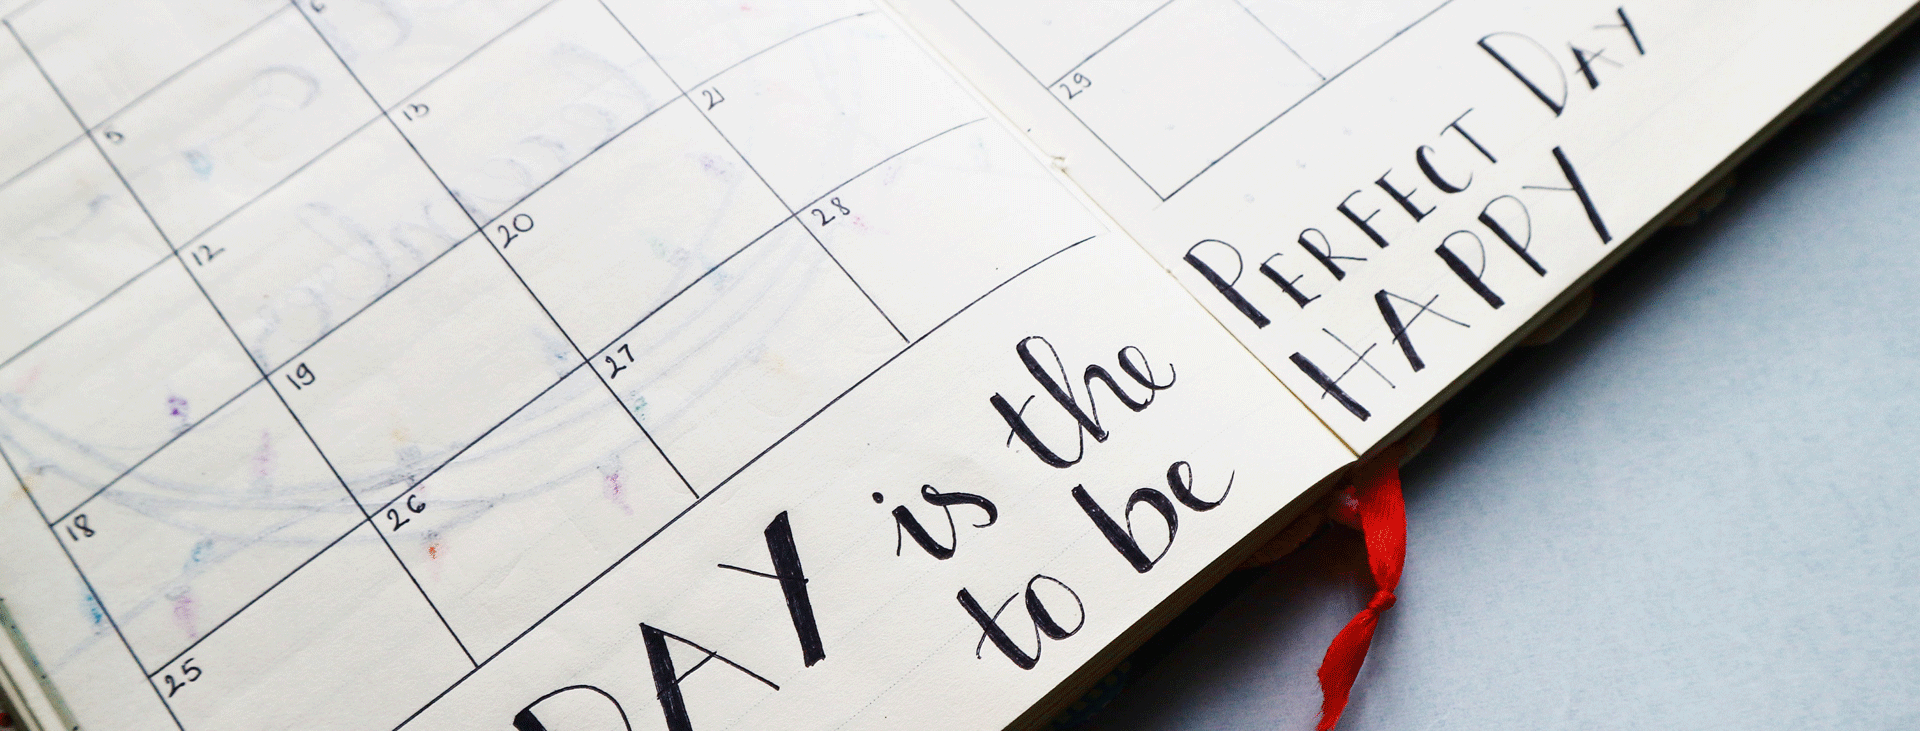 5
12 13
18 19 20 21
25 26 27 28
29
DAY is the PERFECT DAY
to be HAPPY